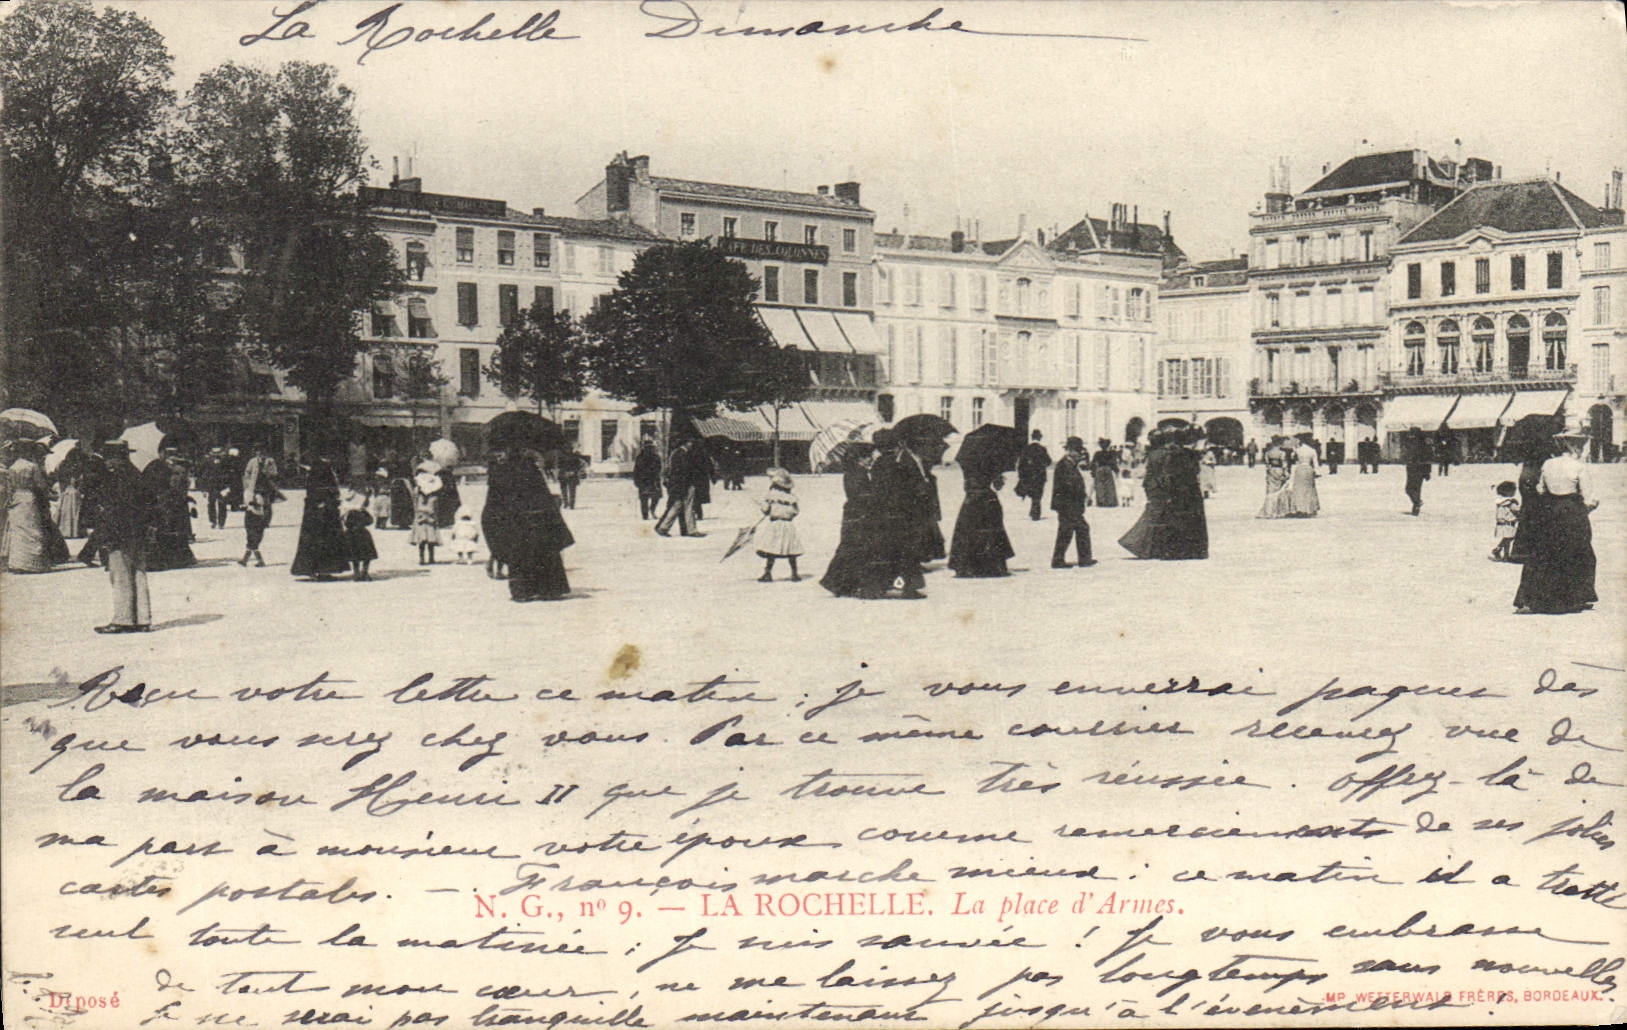 La Rochelle Dimanche
CAFE DES COLONNES
Reçu votre lettre ce matin ; je vous enverrai paquet dès
que vous serez chez vous. Par ce même courrier recevrez vue de
la maison Henri II que je trouve très réussie. Offrez-là de
ma part à monsieur votre époux comme remerciements de ses jolies
cartes postales. — François marche mieux : ce matin il a trotté
N. G., nº 9. — LA ROCHELLE. La place d'Armes.
seul toute la matinée ; Je suis sauvée ! Je vous embrasse
de tout mon cœur, ne me laissez pas longtemps sans nouvelles.
Déposé
IMP. WETTERWALD FRÈRES, BORDEAUX.
Je ne serai pas tranquille maintenant jusqu'à l'évènement.